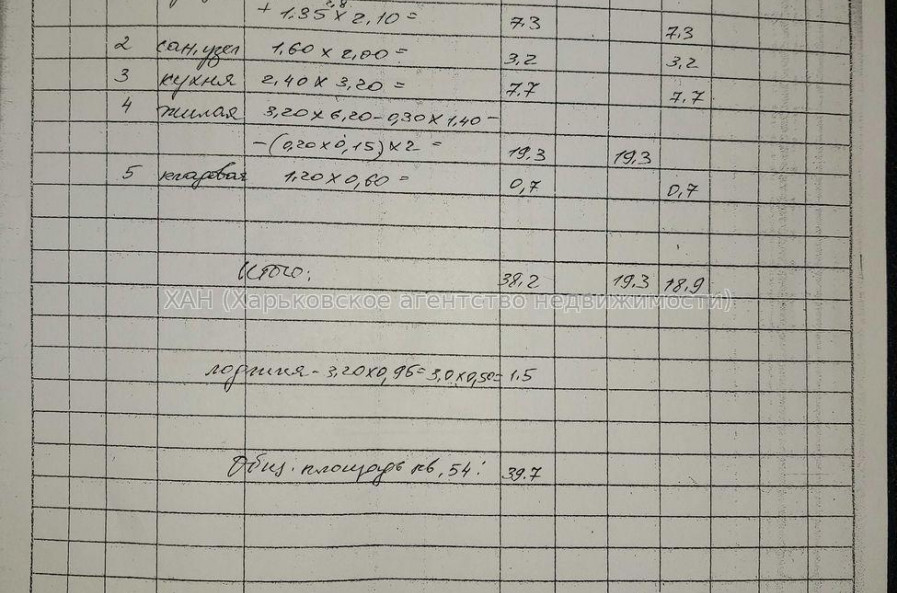 2,8
+ 1.35 x 2,10 = 7.3 7.3
2 сан.узел 1,60 x 2,00 = 3,2 3,2
3 кухня 2,40 x 3,20 = 7,7 7,7
4 жилая 3,20 x 6,20 - 0,30 x 1,40 -
- (0,20 x 0,15) x 2 = 19,3 19,3
5 кладовая 1,20 x 0,60 = 0,7 0,7
Итого: 38.2 19.3 18,9
ХАН (Харьковское агентство недвижимости)
лоджия - 3,20x0,95= 3,0x0,50= 1.5
Общ. площадь кв. 54: 39.7